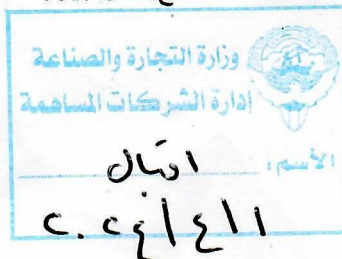 وزارة التجارة والصناعة
إدارة الشركات المساهمة
الأسم:
٢٠٢٤/٤/١